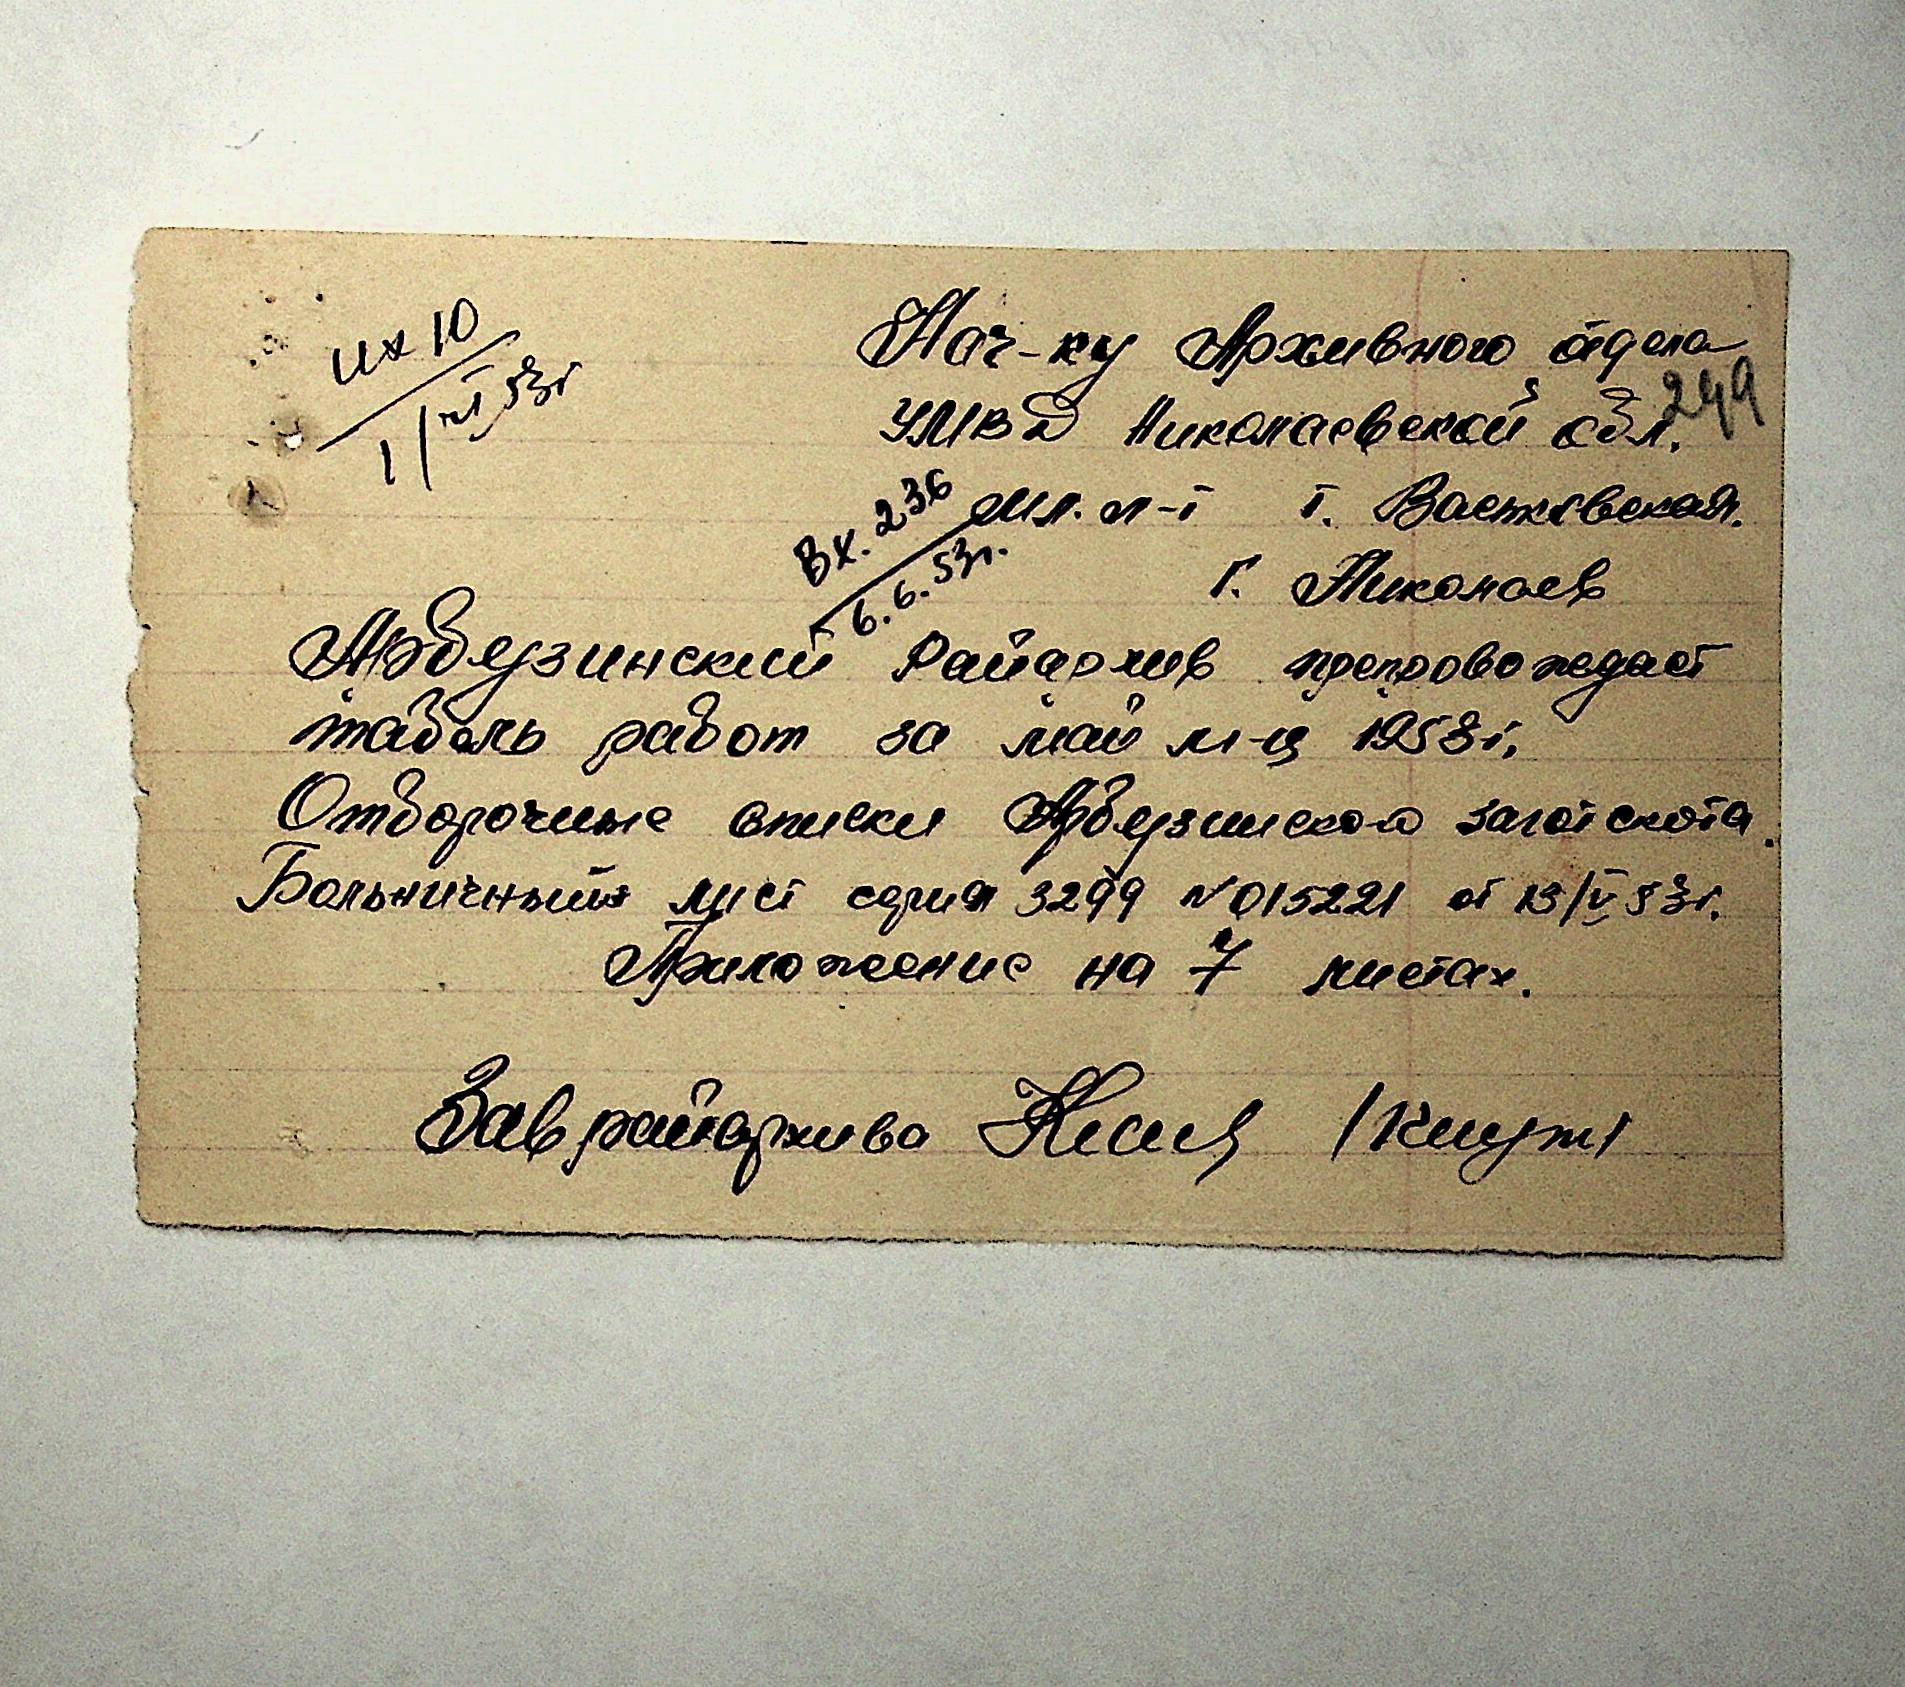 их 10
1/VI 53г
Нач-ку Архивного отдела
249
УМВД Николаевской обл.
мл. л-т т. Васьковская.
Вх. 236
6.6.53г.
Г. Николаев
Арбузинский Райархив препровождает
табель работ за май м-ц 1953г.
Отборочные списки Арбузинского заготскота.
Больничный лист серия 3299 № 015221 от 13/V 53г.
Приложение на 7 листах.
Зав райархива (Кнут)